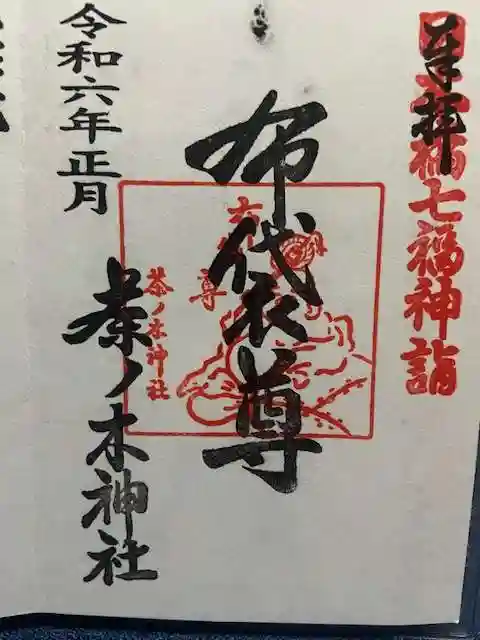 奉拝
七福神詣
布袋尊
尊
茶ノ木神社
令和六年正月
茶ノ木神社